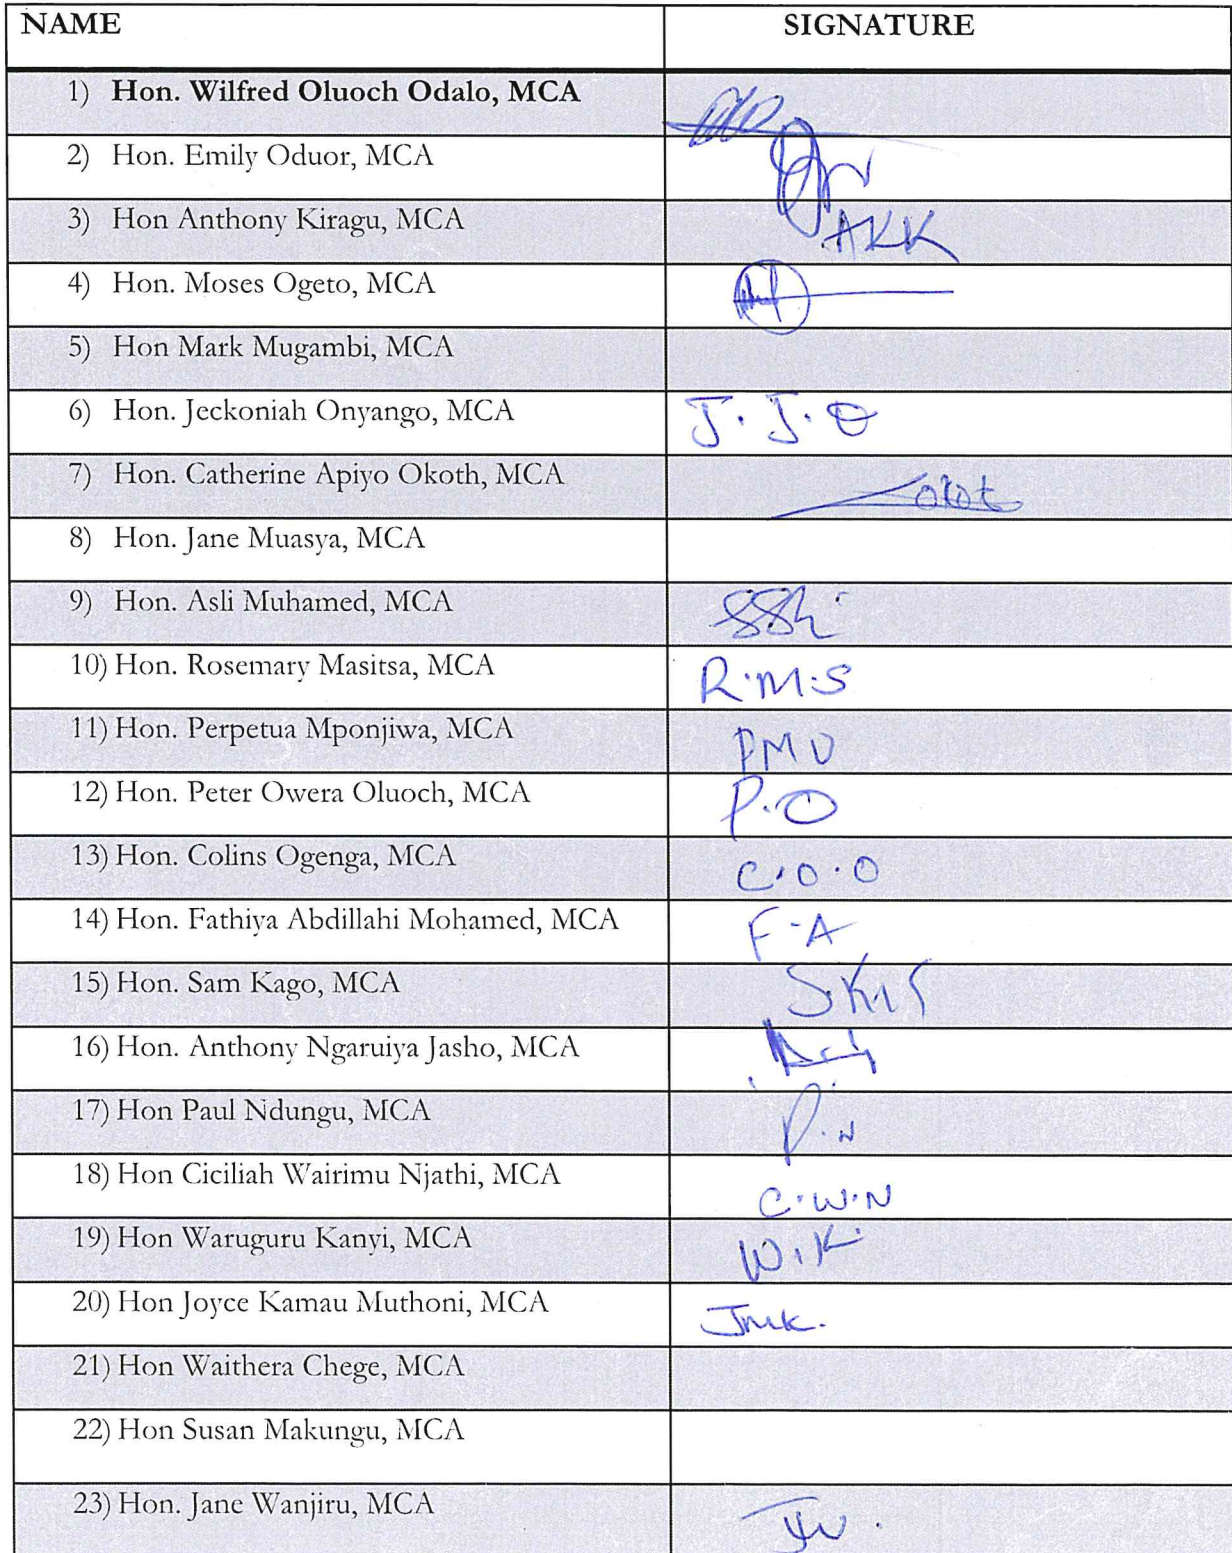 NAME SIGNATURE
1) Hon. Wilfred Oluoch Odalo, MCA
2) Hon. Emily Oduor, MCA
3) Hon Anthony Kiragu, MCA AKK
4) Hon. Moses Ogeto, MCA
5) Hon Mark Mugambi, MCA
6) Hon. Jeckoniah Onyango, MCA J. J. O
7) Hon. Catherine Apiyo Okoth, MCA
8) Hon. Jane Muasya, MCA
9) Hon. Asli Muhamed, MCA
10) Hon. Rosemary Masitsa, MCA R.M.S
11) Hon. Perpetua Mponjiwa, MCA
12) Hon. Peter Owera Oluoch, MCA P.O
13) Hon. Colins Ogenga, MCA C.O.O
14) Hon. Fathiya Abdillahi Mohamed, MCA F-A
15) Hon. Sam Kago, MCA
16) Hon. Anthony Ngaruiya Jasho, MCA
17) Hon Paul Ndungu, MCA P.N
18) Hon Ciciliah Wairimu Njathi, MCA C.W.N
19) Hon Waruguru Kanyi, MCA W.K
20) Hon Joyce Kamau Muthoni, MCA Jmk.
21) Hon Waithera Chege, MCA
22) Hon Susan Makungu, MCA
23) Hon. Jane Wanjiru, MCA